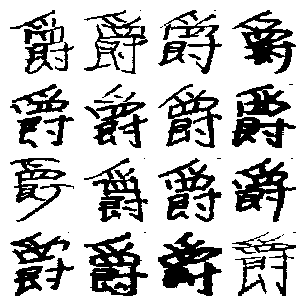 爵爵爵爵
爵爵爵爵
爵爵爵爵
爵爵爵爵